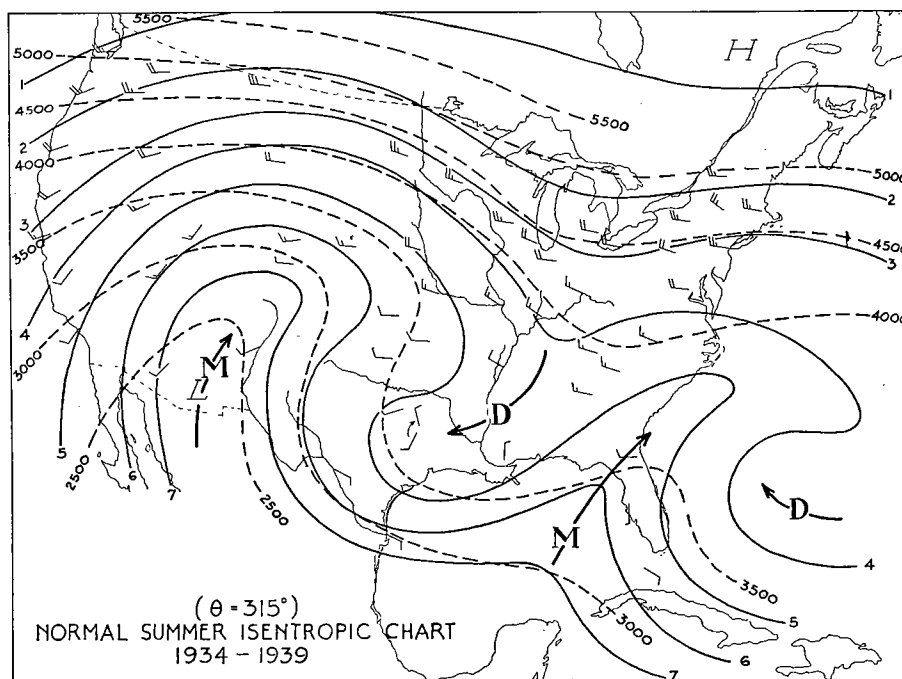 5500
5000
4500
4000
3500
3000
2500
1
2
3
4
5
6
7
H
5500
1
5000
2
4500
3
4000
M
L
D
2500
M
D
4
3500
5
3000
6
7
(θ = 315°)
NORMAL SUMMER ISENTROPIC CHART
1934 – 1939